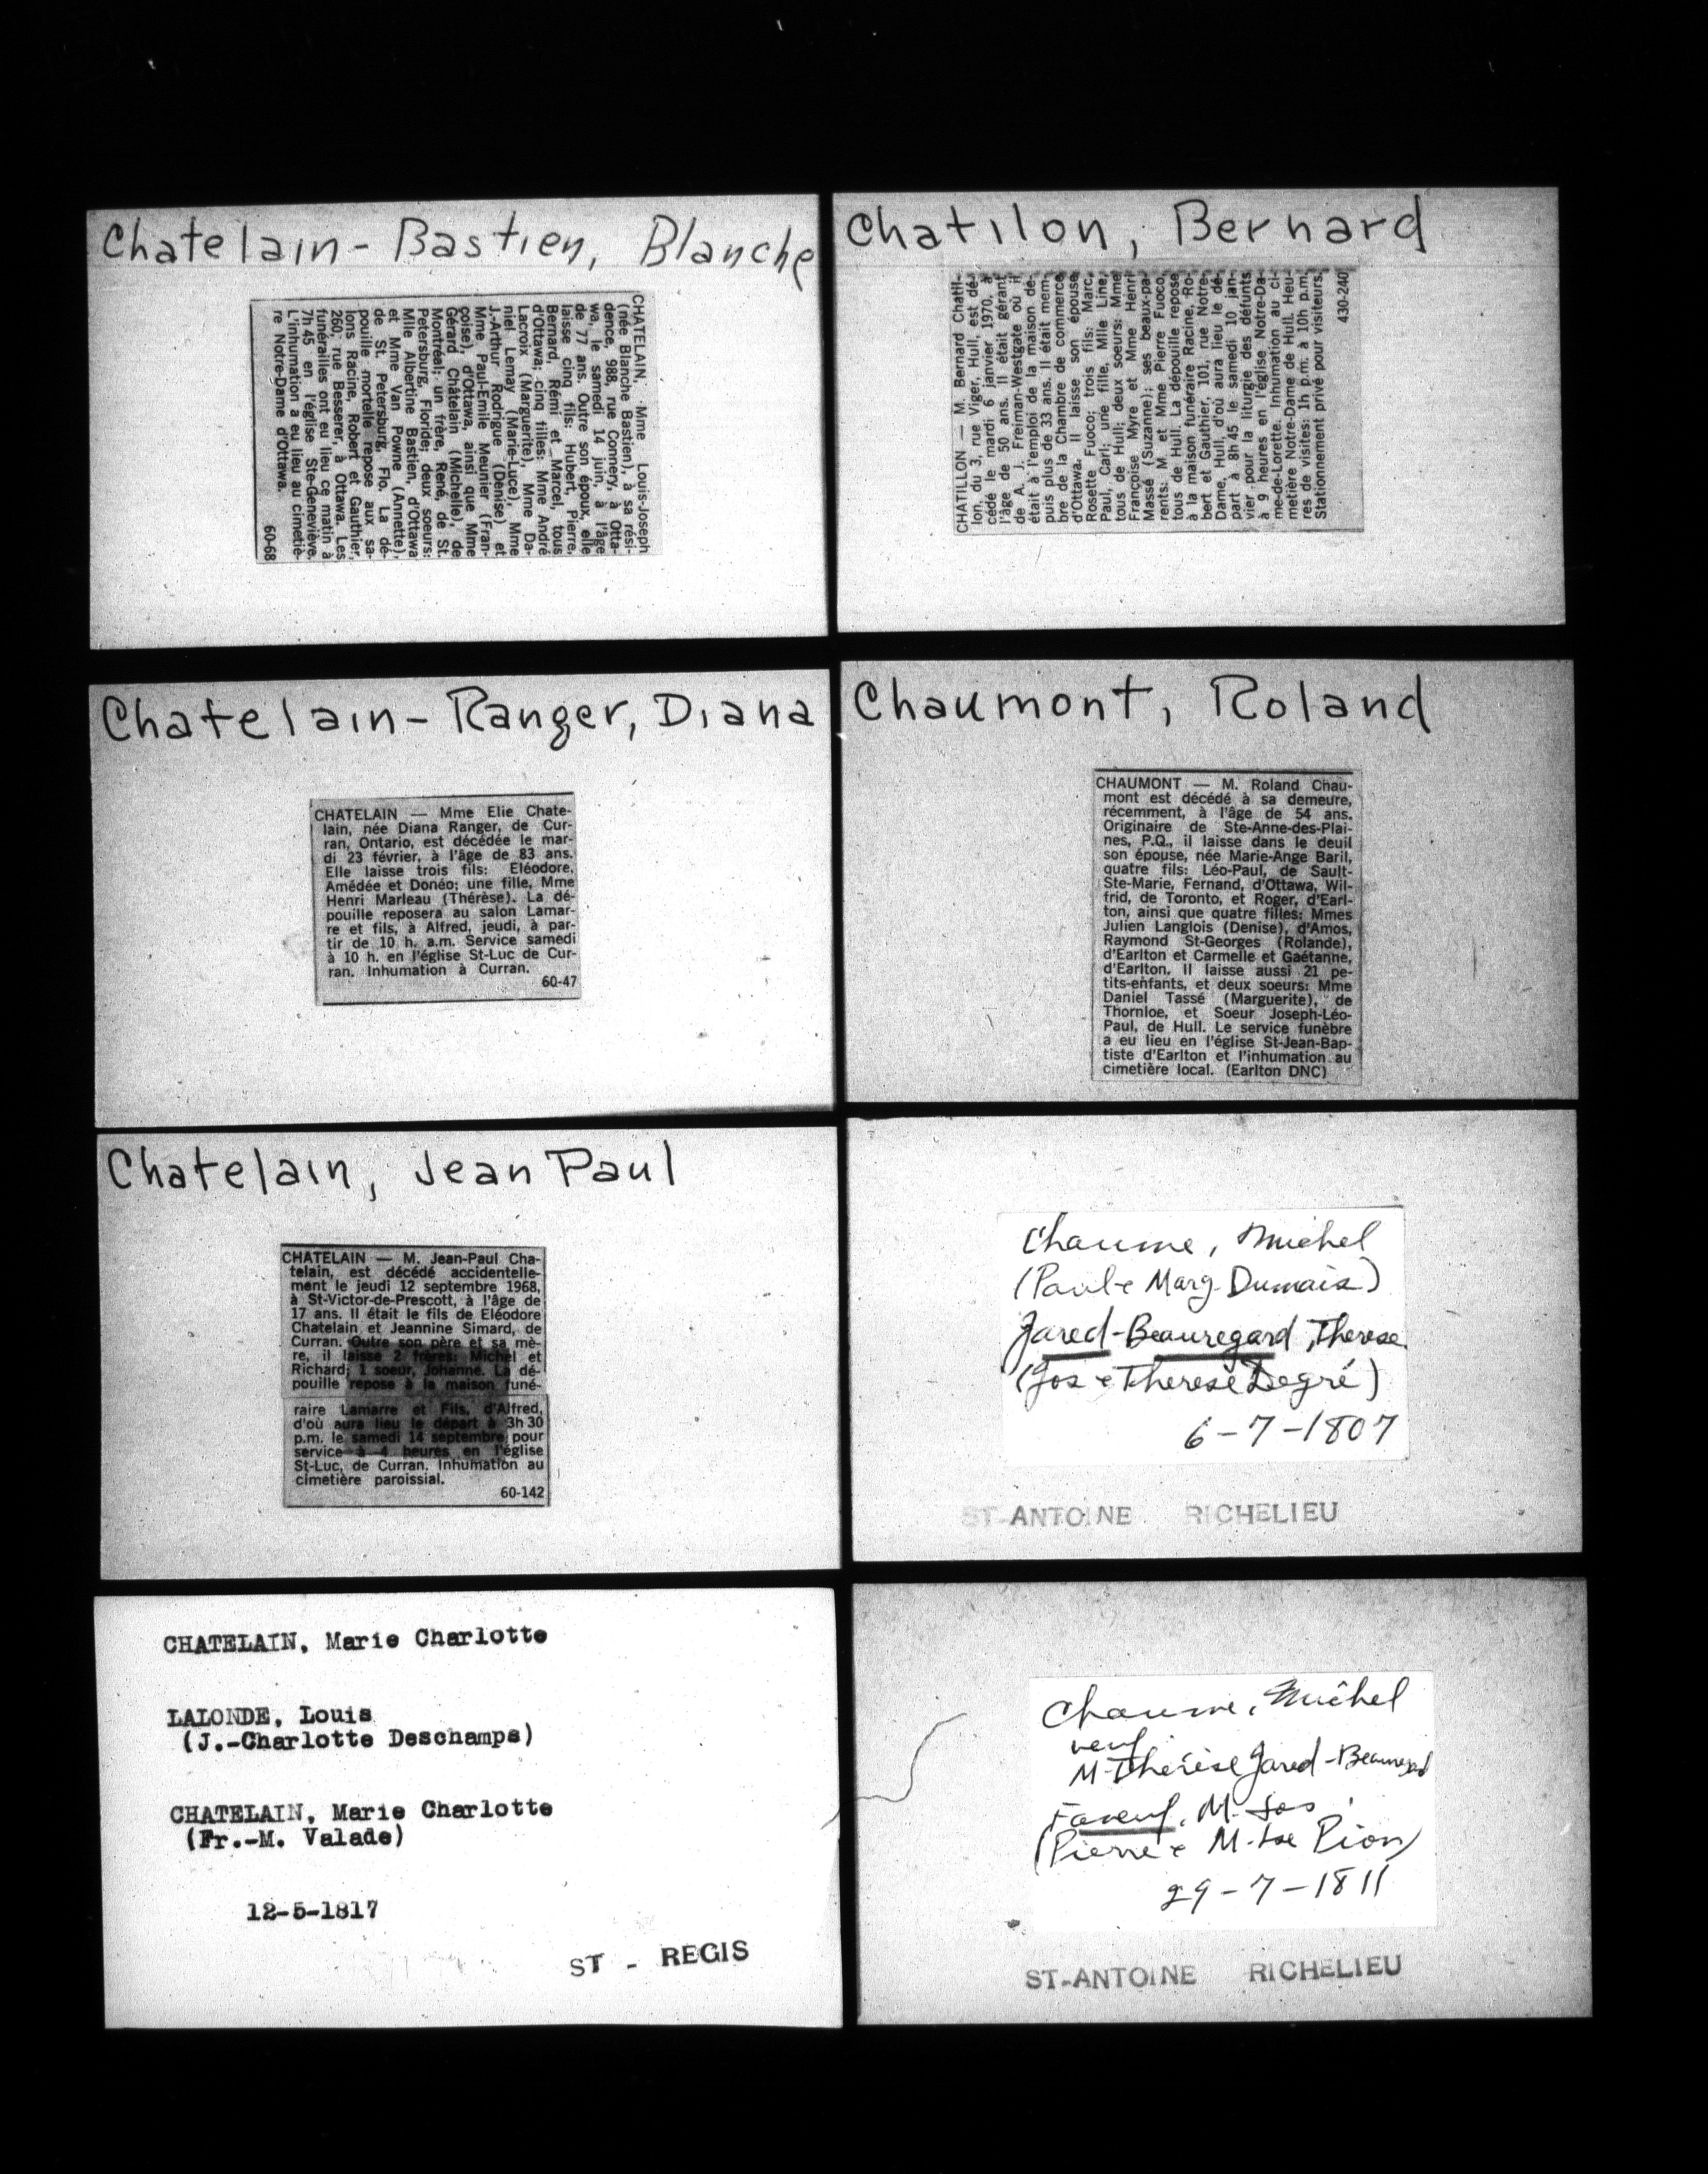 Chatelain-Bastien, Blanche
CHATELAIN, Mme Louis-Joseph
(née Blanche Bastien), à sa rési-
dence, 988, rue Connery, à Otta-
wa, le samedi 14 juin, à l'âge
de 77 ans. Outre son époux, elle
laisse cinq fils: Hubert, Pierre,
Bernard, Rémi et Marcel, tous
d'Ottawa; cinq filles: Mme André
Lacroix (Margurite), Mme Da-
niel Lemay (Marie-Luce), Mme
J.-Arthur Rodrigue (Denise) et
Mme Paul-Emile Meunier (Fran-
çoise), d'Ottawa, ainsi que Mme
Gérard Châtelain (Michelle), de
Montréal; un frère, René, de St.
Petersburg, Floride; deux soeurs:
Mlle Albertine Bastien, d'Ottawa
et Mme Van Powne (Annette),
de St. Petersburg, Flo. La dé-
pouille mortelle repose aux sa-
lons Racine, Robert et Gauthier,
260, rue Besserer, à Ottawa. Les
funérailles ont eu lieu ce matin à
7h 45 en l'église Ste-Geneviève.
L'inhumation a eu lieu au cimetiè-
re Notre-Dame d'Ottawa.
60-68
Chatilon, Bernard
CHATILLON — M. Bernard Chatil-
lon, du 3, rue Viger, Hull, est dé-
cédé le mardi 6 janvier 1970, à
l'âge de 50 ans. Il était gérant
de A. J. Freiman-Westgate où il
était à l'emploi de la maison de-
puis plus de 33 ans. Il était mem-
bre de la Chambre de commerce
d'Ottawa. Il laisse son épouse
Rosette Fuoco; trois fils: Marc,
Paul, Carl; une fille, Mlle Line,
tous de Hull; deux soeurs: Mme
Françoise Myre et Mme Henri
Massé (Suzanne); ses beaux-pa-
rents: M. et Mme Pierre Fuoco,
tous de Hull. La dépouille repose
à la maison funéraire Racine, Ro-
bert et Gauthier, 101, rue Notre-
Dame, Hull, d'où aura lieu le dé-
part à 8h 45 le samedi 10 jan-
vier pour la liturgie des défunts
à 9 heures en l'église Notre-Da-
me-de-Lorette. Inhumation au ci-
metière Notre-Dame de Hull. Heu-
res de visites: 1h p.m. à 10h p.m.
Stationnement privé pour visiteurs.
430-240
Chatelain-Ranger, Diana
CHATELAIN — Mme Elie Chate-
lain, née Diana Ranger, de Cur-
ran, Ontario, est décédée le mar-
di 23 février, à l'âge de 83 ans.
Elle laisse trois fils: Eléodore,
Amédée et Donéo; une fille, Mme
Henri Marleau (Thérèse). La dé-
pouille reposera au salon Lamar-
re et fils, à Alfred, jeudi, à par-
tir de 10 h. a.m. Service samedi
à 10 h. en l'église St-Luc de Cur-
ran. Inhumation à Curran.
60-47
Chaumont, Roland
CHAUMONT — M. Roland Chau-
mont est décédé à sa demeure,
récemment, à l'âge de 54 ans.
Originaire de Ste-Anne-des-Plai-
nes, P.Q., il laisse dans le deuil
son épouse, née Marie-Ange Baril,
quatre fils: Léo-Paul, de Sault-
Ste-Marie, Fernand, d'Ottawa, Wil-
frid, de Toronto, et Roger, d'Earl-
ton, ainsi que quatre filles: Mmes
Julien Langlois (Denise), d'Amos,
Raymond St-Georges (Rolande),
d'Earlton et Carmelle et Gaétanne,
d'Earlton. Il laisse aussi 21 pe-
tits-enfants, et deux soeurs: Mme
Daniel Tassé (Marguerite), de
Thornloe, et Soeur Joseph-Léo-
Paul, de Hull. Le service funèbre
a eu lieu en l'église St-Jean-Bap-
tiste d'Earlton et l'inhumation au
cimetière local. (Earlton DNC)
Chatelain, Jean Paul
CHATELAIN — M. Jean-Paul Cha-
telain, est décédé accidentelle-
ment le jeudi 12 septembre 1968,
à St-Victor-de-Prescott, à l'âge de
17 ans. Il était le fils de Eléodore
Chatelain et Jeannine Simard, de
Curran. Outre son père et sa mè-
re, il laisse 2 frères: Michel et
Richard; 1 soeur, Johanne. La dé-
pouille repose à la maison funé-
raire Lamarre et Fils, d'Alfred,
d'où aura lieu le départ à 3h 30
p.m. le samedi 14 septembre pour
service à 4 heures en l'église
St-Luc, de Curran. Inhumation au
cimetière paroissial.
60-142
Chaume, Michel
(Paul & Marg. Dumais)
Jared-Beauregard, Therese
(Jos & Therese Degré)
6-7-1807
ST-ANTOINE RICHELIEU
CHATELAIN, Marie Charlotte
LALONDE, Louis
(J.-Charlotte Deschamps)
CHATELAIN, Marie Charlotte
(Fr.-M. Valade)
12-5-1817
ST - REGIS
Chaume, Michel
veuf
M-Thérèse Jared-Beauregard
M-Jos
(Pierre & M-Jse Pion)
29-7-1811
ST-ANTOINE RICHELIEU